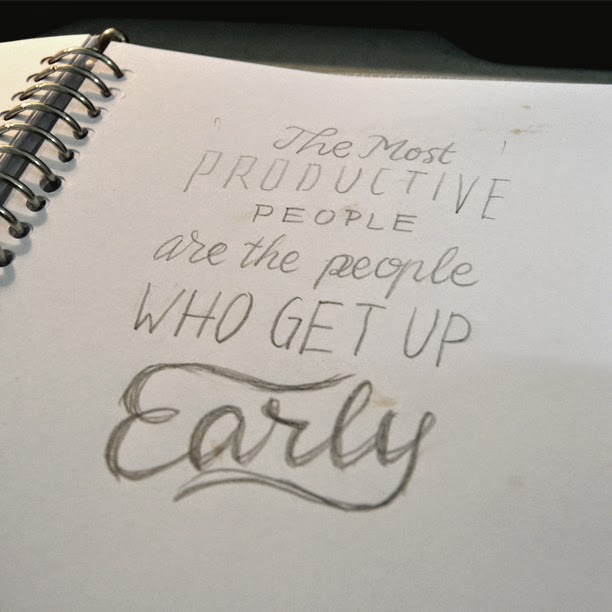 The Most
PRODUCTIVE
PEOPLE
are the people
WHO GET UP
Early